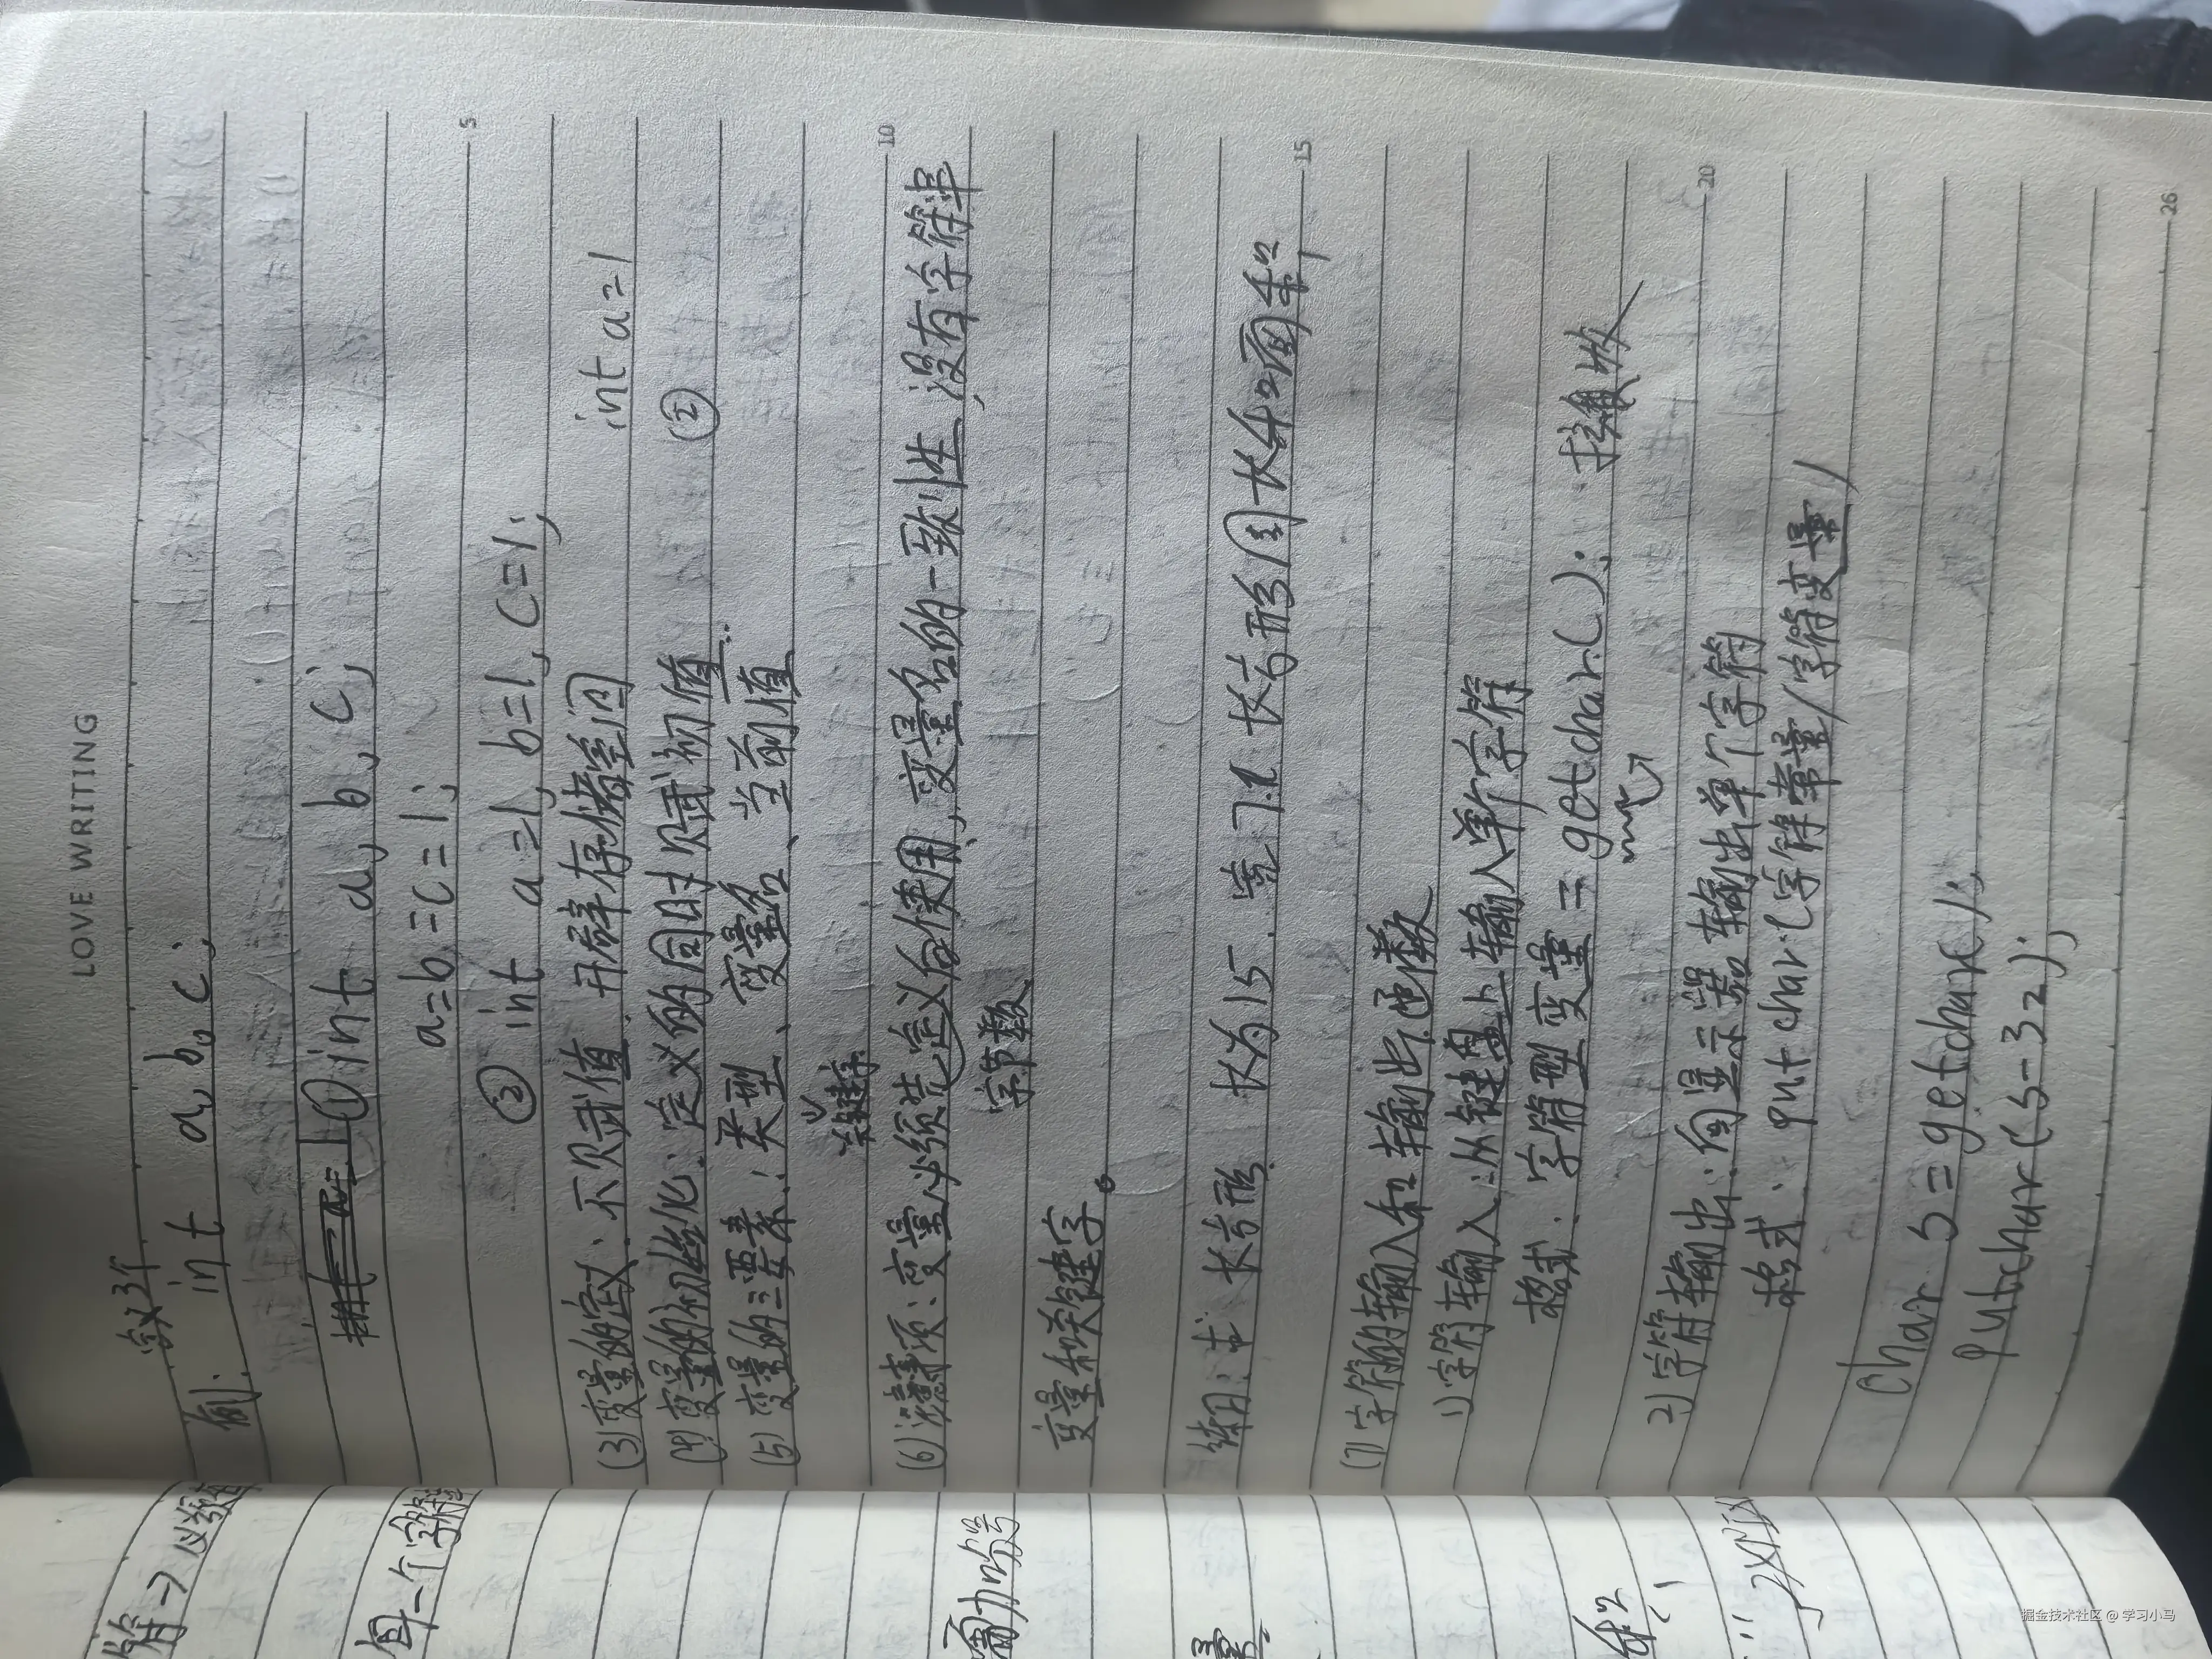 LOVE WRITING
定义3个
例: int a, b, c;
① int a, b, c;
a=b=c=1;
② int a=1, b=1, c=1;
5
(3) 变量的定义: 不赋值. 开辟存储空间 int a=1
(4) 变量的初始化: 定义的同时赋初值. ②
(5) 变量的三要素: 类型、变量名、当前值
关键字
10
(6) 注意事项: 变量必须先定义后使用, 变量名的一致性, 没有字符串
字节数
变量和关键字。
练习: 求长方形. 长为15. 宽7.2 长方形周长和面积
15
(7) 字符的输入和输出函数
1) 字符输入: 从键盘上输入单个字符
格式: 字符型变量 = getchar(); 接收
20
2) 字符输出: 向显示器输出单个字符
格式: putchar(字符常量/字符变量)
Char s = getchar();
putchar(s-32);
26
符→
单一个字符
量
掘金技术社区 @ 学习小马